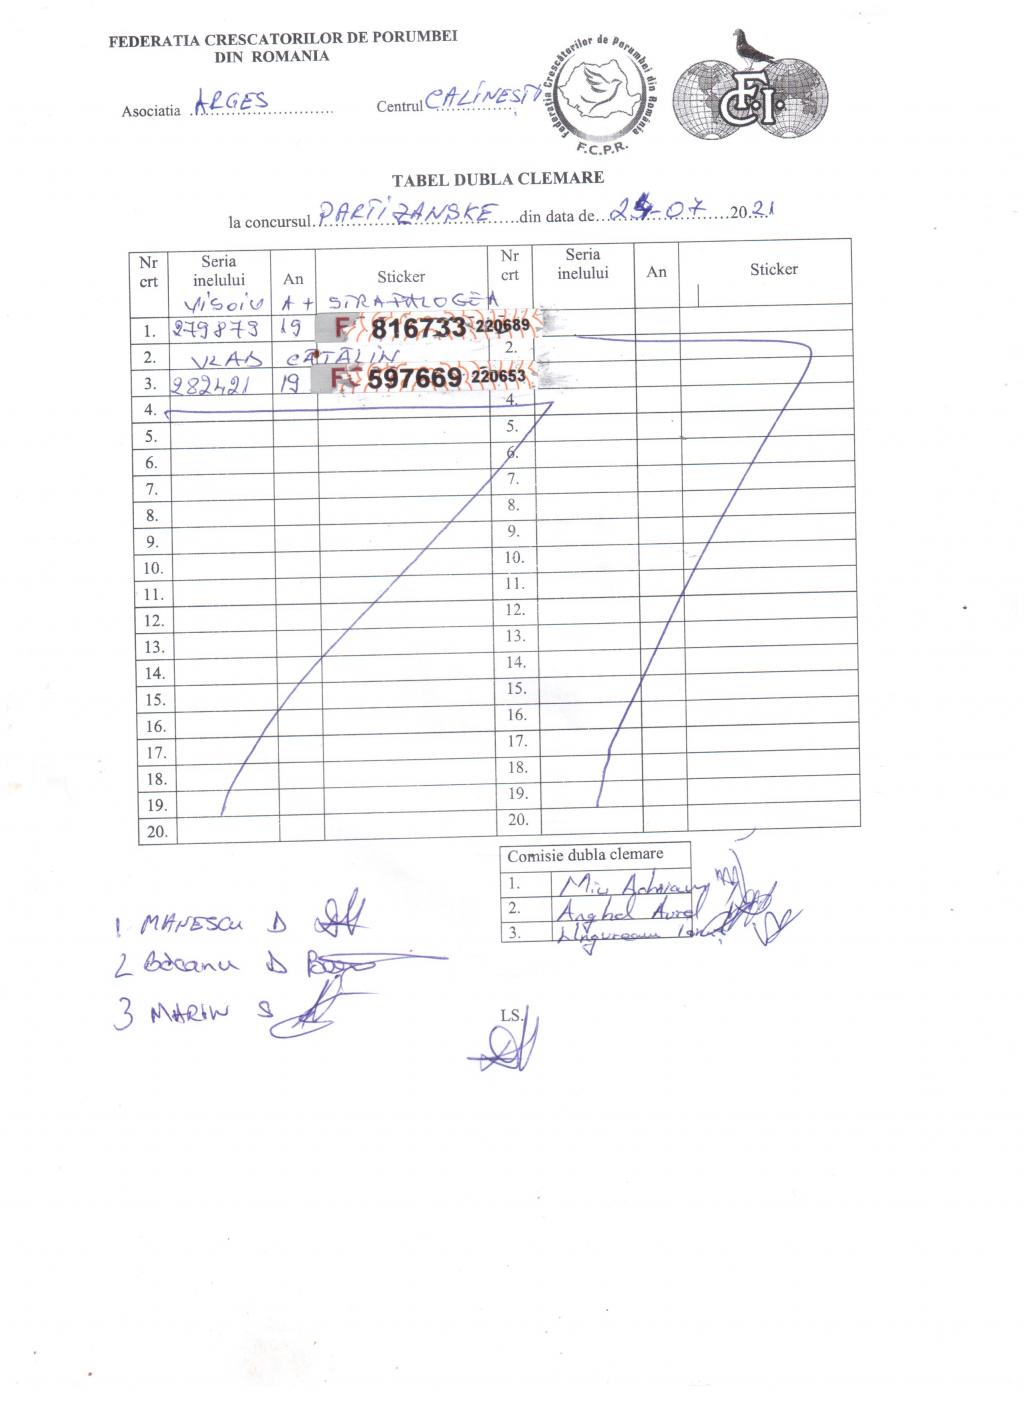 FEDERATIA CRESCATORILOR DE PORUMBEI
DIN ROMANIA
Asociatia ARGES Centrul CALINESTI
Federatia Crescătorilor de Porumbei din România
F.C.P.R.
F.C.I.
TABEL DUBLA CLEMARE
la concursul PARTIZANSKE din data de 24-07 2021
Nr crt Seria inelului An Sticker Nr crt Seria inelului An Sticker
VISOIU A + STRAFALOGEA
1. 279879 19 F 816733 220689
2. VLAD CATALIN 2.
3. 282421 19 F 597669 220653
4. 4.
5. 5.
6. 6.
7. 7.
8. 8.
9. 9.
10. 10.
11. 11.
12. 12.
13. 13.
14. 14.
15. 15.
16. 16.
17. 17.
18. 18.
19. 19.
20. 20.
Comisie dubla clemare
1. Miu Adrian
2. Anghel Aurel
3. Lingureanu
1 MANESCU D
2 Bòcanu D
3 MARIN S
LS.